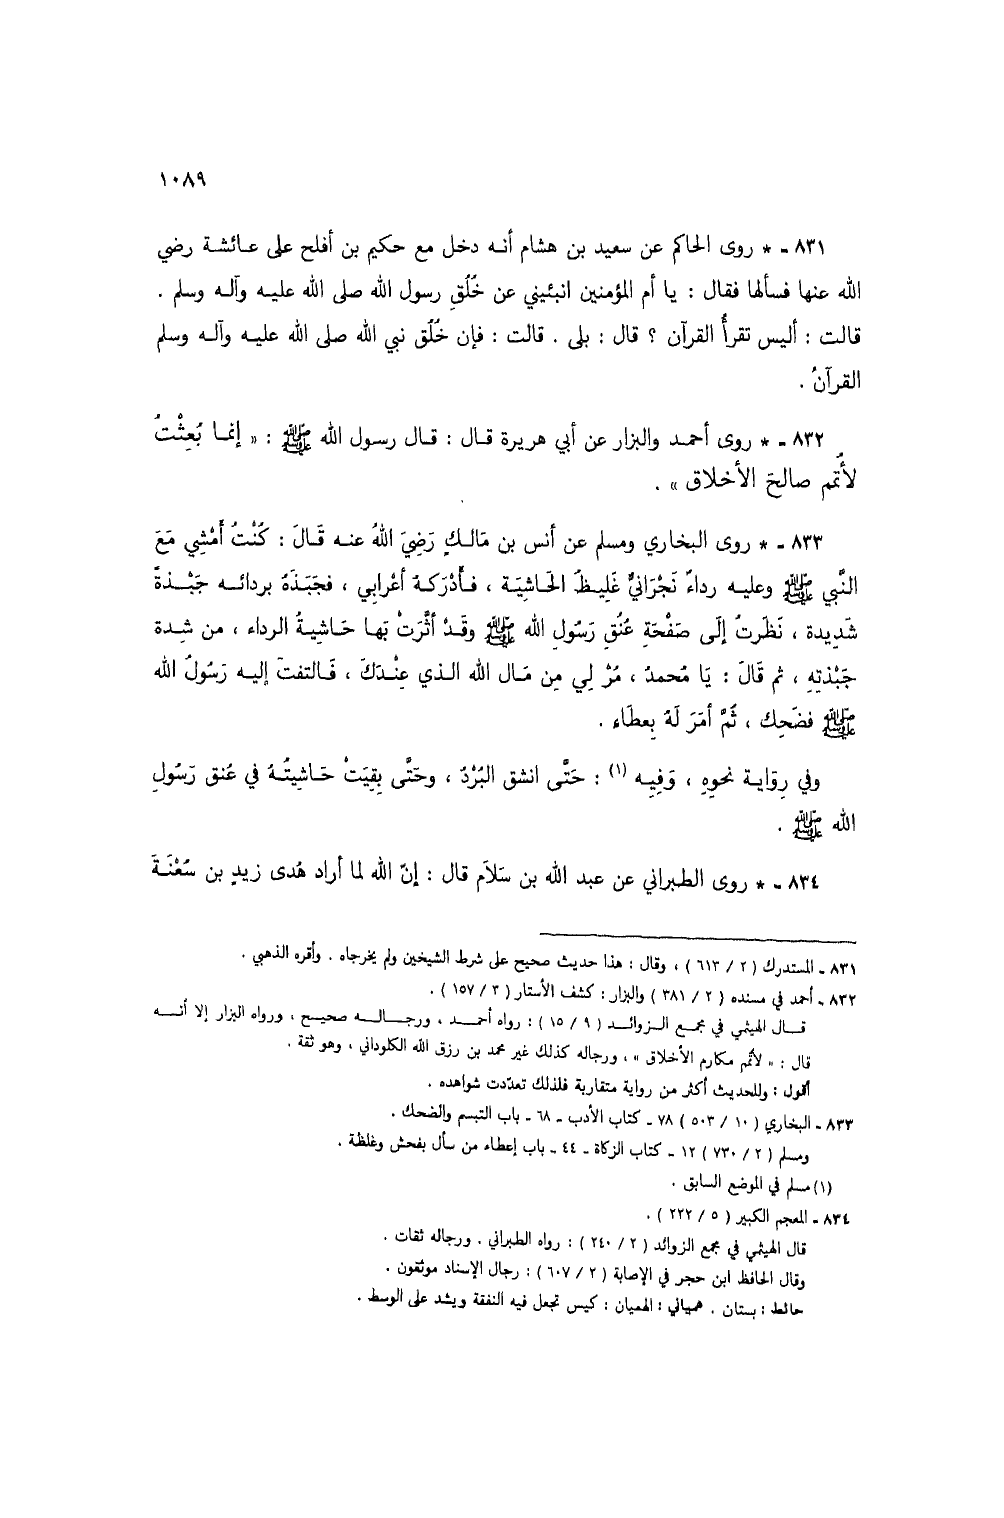 ١٠٨٩
٨٣١ - * روى الحاكم عن سعيد بن هشام أنه دخل مع حكيم بن أفلح على عائشة رضي
الله عنها فسألها فقال : يا أم المؤمنين انبئيني عن خُلُقِ رسول الله صلى الله عليه وآله وسلم .
قالت : أليس تقرأُ القرآن ؟ قال : بلى . قالت : فإن خُلُق نبي الله صلى الله عليه وآله وسلم
القرآنُ .
٨٣٢ - * روى أحمد والبزار عن أبي هريرة قال : قال رسول الله ﷺ : « إنما بُعِثْتُ
لأُتمم صالحَ الأخلاق » .
٨٣٣ - * روى البخاري ومسلم عن أنس بن مَالكٍ رَضِيَ اللهُ عنه قَالَ : كُنْتُ أَمْشِي مَعَ
النَّبي ﷺ وعليه رداءٌ نَجْرَانيٌّ غَلِيظُ الحَاشِيَة ، فَأَدْرَكَهُ أعْرابي ، فجَبَذَهُ بردائه جَبْذةً
شَدِيدة ، نَظَرتُ إلَى صَفْحَةِ عُنُقِ رَسُولِ الله ﷺ وقَدْ أثَّرَتْ بَها حَاشِيةُ الرداء ، من شِدة
جَبْذتِهِ ، ثم قَالَ : يَا مُحمدُ ، مُرْ لِي مِن مَال الله الذي عِنْدَكَ ، فَالتفتَ إليه رَسُولُ الله
ﷺ فضَحِك ، ثُمَّ أمَرَ لَهُ بِعطَاء .
وفي رِوَاية نحوِهِ ، وَفِيه (١) : حَتَّى انشق البُرْدُ ، وحَتَّى بِقيَتْ حَاشيتُهُ في عُنق رَسُولِ
الله ﷺ .
٨٣٤ - * روى الطبراني عن عبد الله بن سَلاَم قال : إنّ الله لما أراد هُدى زيدٍ بن سُعْنَةَ
٨٣١ - المستدرك ( ٢ / ٦١٣ ) ، وقال : هذا حديث صحيح على شرط الشيخين ولم يخرجاه . وأقره الذهبي .
٨٣٢ - أحمد في مسنده ( ٢ / ٣٨١ ) والبزار : كشف الأستار ( ٣ / ١٥٧ ) .
قال الهيثمي في مجمع الزوائد ( ٩ / ١٥ ) : رواه أحمد ، ورجاله صحيح ، ورواه البزار إلا أنه
قال : « لأتمم مكارم الأخلاق » ، ورجاله كذلك غير محمد بن رزق الله الكلوداني ، وهو ثقة .
أقول : وللحديث أكثر من رواية متقاربة فلذلك تعدّدت شواهده .
٨٣٣ - البخاري ( ١٠ / ٥٠٣ ) ٧٨ - كتاب الأدب - ٦٨ - باب التبسم والضحك .
ومسلم ( ٢ / ٧٣٠ ) ١٢ - كتاب الزكاة - ٤٤ - باب إعطاء من سأل بفحش وغلظة .
(١) مسلم في الموضع السابق .
٨٣٤ - المعجم الكبير ( ٥ / ٢٢٢ ) .
قال الهيثمي في مجمع الزوائد ( ٢ / ٢٤٠ ) : رواه الطبراني . ورجاله ثقات .
وقال الحافظ ابن حجر في الإصابة ( ٢ / ٦٠٧ ) : رجال الإسناد موثقون .
حائط : بستان . همياني : الهميان : كيس تجعل فيه النفقة ويشد على الوسط .